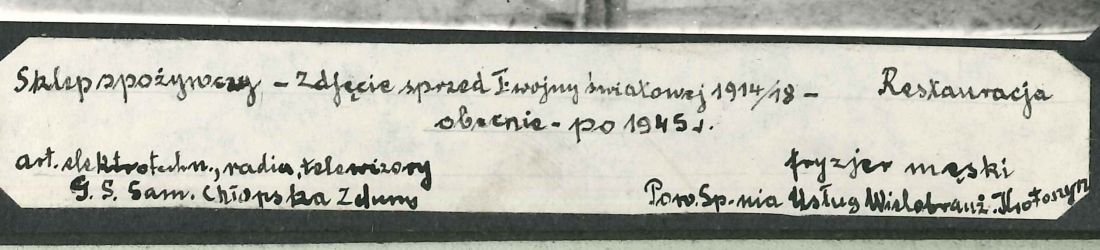 Sklep spożywczy - Zdjęcie sprzed I wojny światowej 1914/18 - Restauracja
obecnie - po 1945 r.
art. elektrotechn., radia, telewizory fryzjer męski
G. S. Sam. Chłopska Zduny Pow. Sp-nia Usług Wielobranż. Krotoszyn